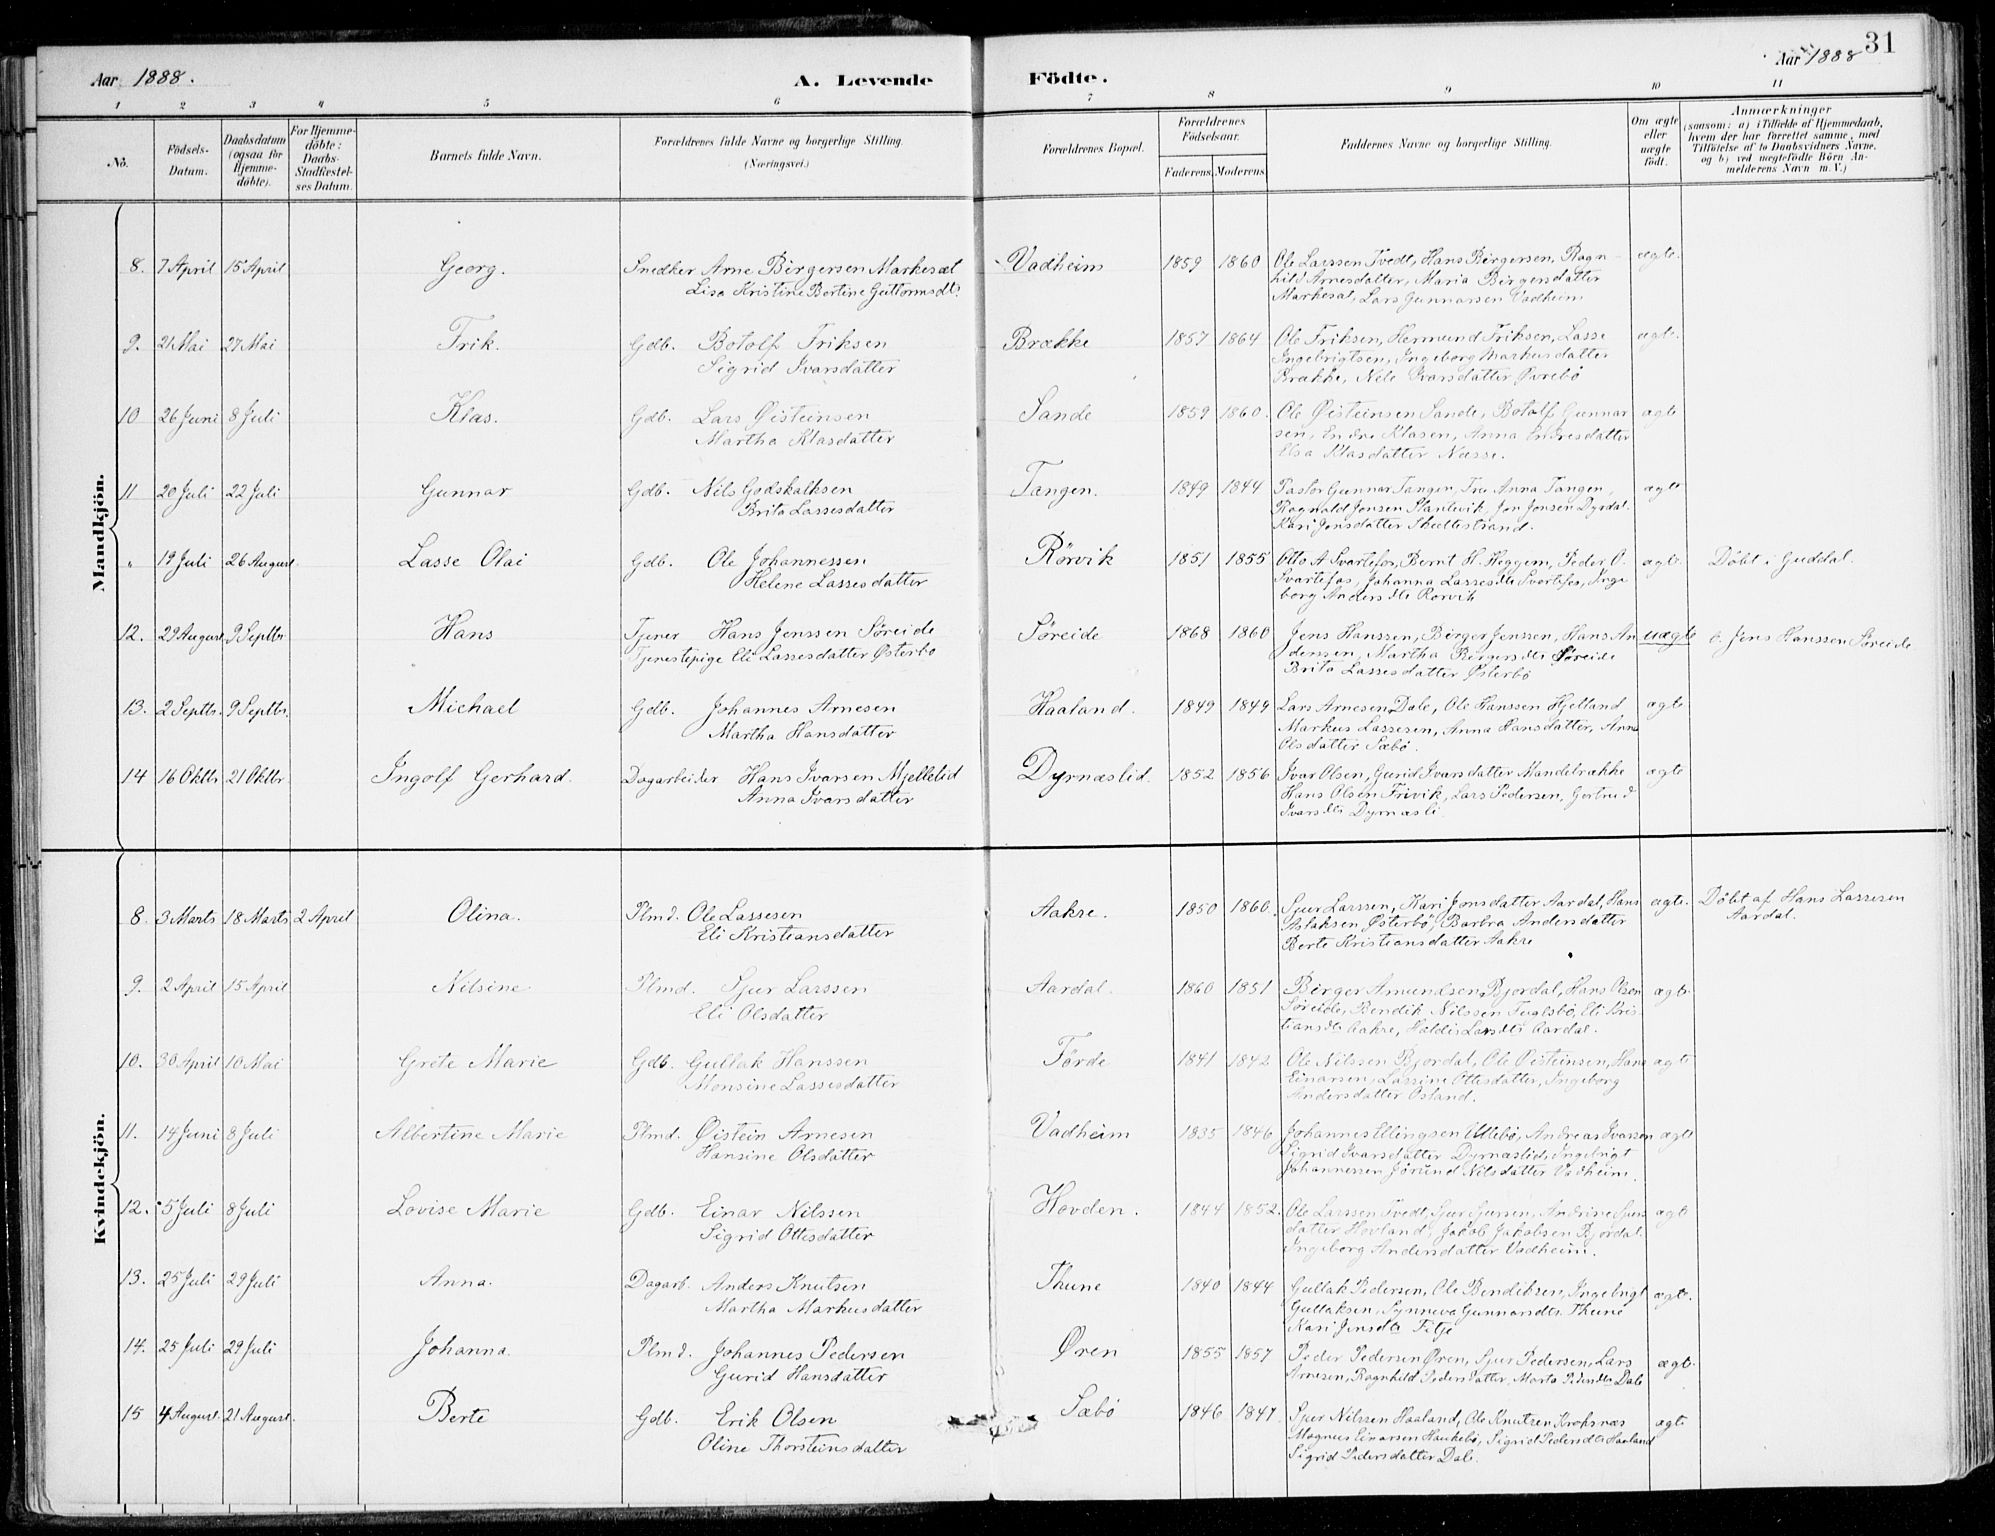 Aar 1888. A. Levende Födte. Aar 1888 31
1 2 3 4 5 6 7 8 9 10 11
No.
Födsels-
Datum.
Daabsdatum
(ogsaa for
Hjemme-
döbte).
For Hjemme-
döbte:
Daabs-
Stadfæstel-
ses Datum.
Barnets fulde Navn.
Forældrenes fulde Navne og borgerlige Stilling.
(Næringsvei.)
Forældrenes Bopæl.
Forældrenes
Födselsaar.
Faderens. Moderens.
Faddernes Navne og borgerlige Stilling.
Om ægte
eller
uægte
födt.
Anmærkninger
(saasom: a) i Tilfælde af Hjemmedaab,
hvem der har forrettet samme, med
Tilföielse af to Daabsvidners Navne,
og b) ved uægtefödte Börn An-
melderens Navn m.V.)
Mandkjön.
8. 7 April 15 April Georg. Snedker Arne Birgersen Markesæt Vadheim 1859 1860 Ole Larssen Tvedt, Hans Birgersen, Ragn- ægte.
Lisa Kristine Bertine Guttormsdt. hild Arnesdatter, Maria Birgersdatter
Markesæt, Lars Gunnarsen Vadheim
9. 21 Mai 27 Mai Erik. Gdb. Botolf Eriksen Brække 1857 1864 Ole Eriksen, Hermund Eriksen, Lasse ægte.
Sigrid Ivarsdatter Ingebrigtsen, Ingeborg Markusdatter
Brække, Nele Ivarsdatter Øvrebö
10 26 Juni 8 Juli Klas. Gdb. Lars Øisteinsen Sande 1859 1860. Ole Øisteinsen Sande, Botolf Gunnar ægte
Martha Klasdatter sen, Endre Klasen, Anna Endresdatter
Elsa Klasdatter Næsse.
11 20 Juli 22 Juli Gunnar Gdb. Nils Godskalksen Tangen. 1849 1844 Pastor Gunnar Tangen, Fru Anna Tangen, ægte
Brita Lassesdatter Ragnald Jensen Slanlevik, Jon Jonsen Dyrdal.
Kari Jonsdatter
" 19 Juli 26 August. Lasse Olai Gdb. Ole Johannessen Rörvik 1851 1855 Otto A Svartefos, Bernt H. Heggem, Peder O. ægte. Döbt i Guddal.
Helene Lassesdatter Svartefos, Johanna Lassesdtr Svartefos, Inge
borg Andersdtr Rörvik
12. 29 August 9 Septbr Hans Tjener Hans Jenssen Søreide Søreide 1868 1860 Jens Hanssen, Birger Jenssen, Hans An uægte Jens Hanssen Søreide
Tjenestepige Eli Lassesdatter Østerbö densen, Martha Birgersdtr Søreide
Brita Lassesdatter Østerbö
13. 2 Septbr. 9 Septbr. Michael Gdb. Johannes Arnesen Haaland. 1849 1849 Lars Arnesen Dale, Ole Hanssen Hjelland ægte
Martha Hansdatter Markus Lassesen, Anna Hansdatter, Anna
Olsdatter Sæbö.
14 16 Oktbr 21 Oktbr Ingolf Gerhard. Dagarbeider Hans Ivarsen Mjellelid Dyrnæslid. 1852 1856 Ivar Olsen, Gurid Ivarsdatter Mandebrække ægte
Anna Ivarsdatter Hans Olsen Frivik, Lars Pedersen, Gertrud
Ivarsdtr Dyrnæsli
Kvindekjön.
8. 3 Marts 18 Marts 2 April Olina. Plmd. Ole Lassesen Aakre. 1850 1860. Sjur Larssen, Kari Jonsdatter Aardal, Hans ægte. Döbt af Hans Lassesen
Eli Kristiansdatter Aslaksen Østerbö, Barbra Andersdatter Aardal.
Berte Kristiansdatter Aakre
9. 2 April 15 April Nilsine Plmd. Sjur Larssen Aardal. 1860 1851 Birger Amundsen Bjordal, Hans Olsen ægte
Eli Olsdatter Søreide, Bendik Nilssen Fuglsbö, Eli Kris-
tiansdtr Aakre, Haldis Larsdtr Aardal.
10. 30 April 10 Mai Grete Marie Gdb. Gullak Hanssen Förde 1841 1842 Ole Nilssen Bjordal, Ole Øisteinsen, Hans ægte
Monsine Lassesdatter Einarsen, Lassine Ottesdatter, Ingeborg
Andersdatter Osland.
11. 14 Juni 8 Juli Albertine Marie Plmd. Øistein Arnesen Vadheim 1835 1846 Johannes Ellingsen Ullebö, Andreas Ivarsen ægte
Hansine Olsdatter Sigrid Ivarsdatter Dyrnæslid, Ingebrigt
Johannessen, Jörund Nilsdatter Vadheim.
12. 5 Juli 8 Juli Lovise Marie Gdb. Einar Nilssen Hovden. 1844 1852. Ole Larssen Tvedt, Sjur Sjursen, Andrine Sjurs ægte
Sigrid Ottesdatter datter Hovland, Jacob Jakobsen Bjordal.
Ingeborg Andersdatter Vadheim.
13. 25 Juli 29 Juli Anna. Dagarb. Anders Knutsen Thune 1840 1844 Gullak Pedersen, Ole Bendiksen, Ingebrigt ægte.
Martha Markusdatter Gullaksen, Synneva Gunnarsdtr Thune
Kari Jensdtr Fitje
14. 25 Juli 29 Juli Johanna Plmd. Johannes Pedersen Øren 1855 1857 Peder Pedersen Øren, Sjur Pedersen, Lars ægte.
Gurid Hansdatter Arnesen, Ragnhild Pedersdatter, Marta Pedersdtr Dale
15 4 August. 21 August. Berte Gdb. Erik Olsen Sæbö 1846 1847. Sjur Nilssen Haaland, Ole Knutsen Krohsnæs ægte
Oline Thorsteinsdatter Magnus Einarsen Haukebö, Sigrid Pedersdtr Haaland
Sigrid Pedersdatter Dale.